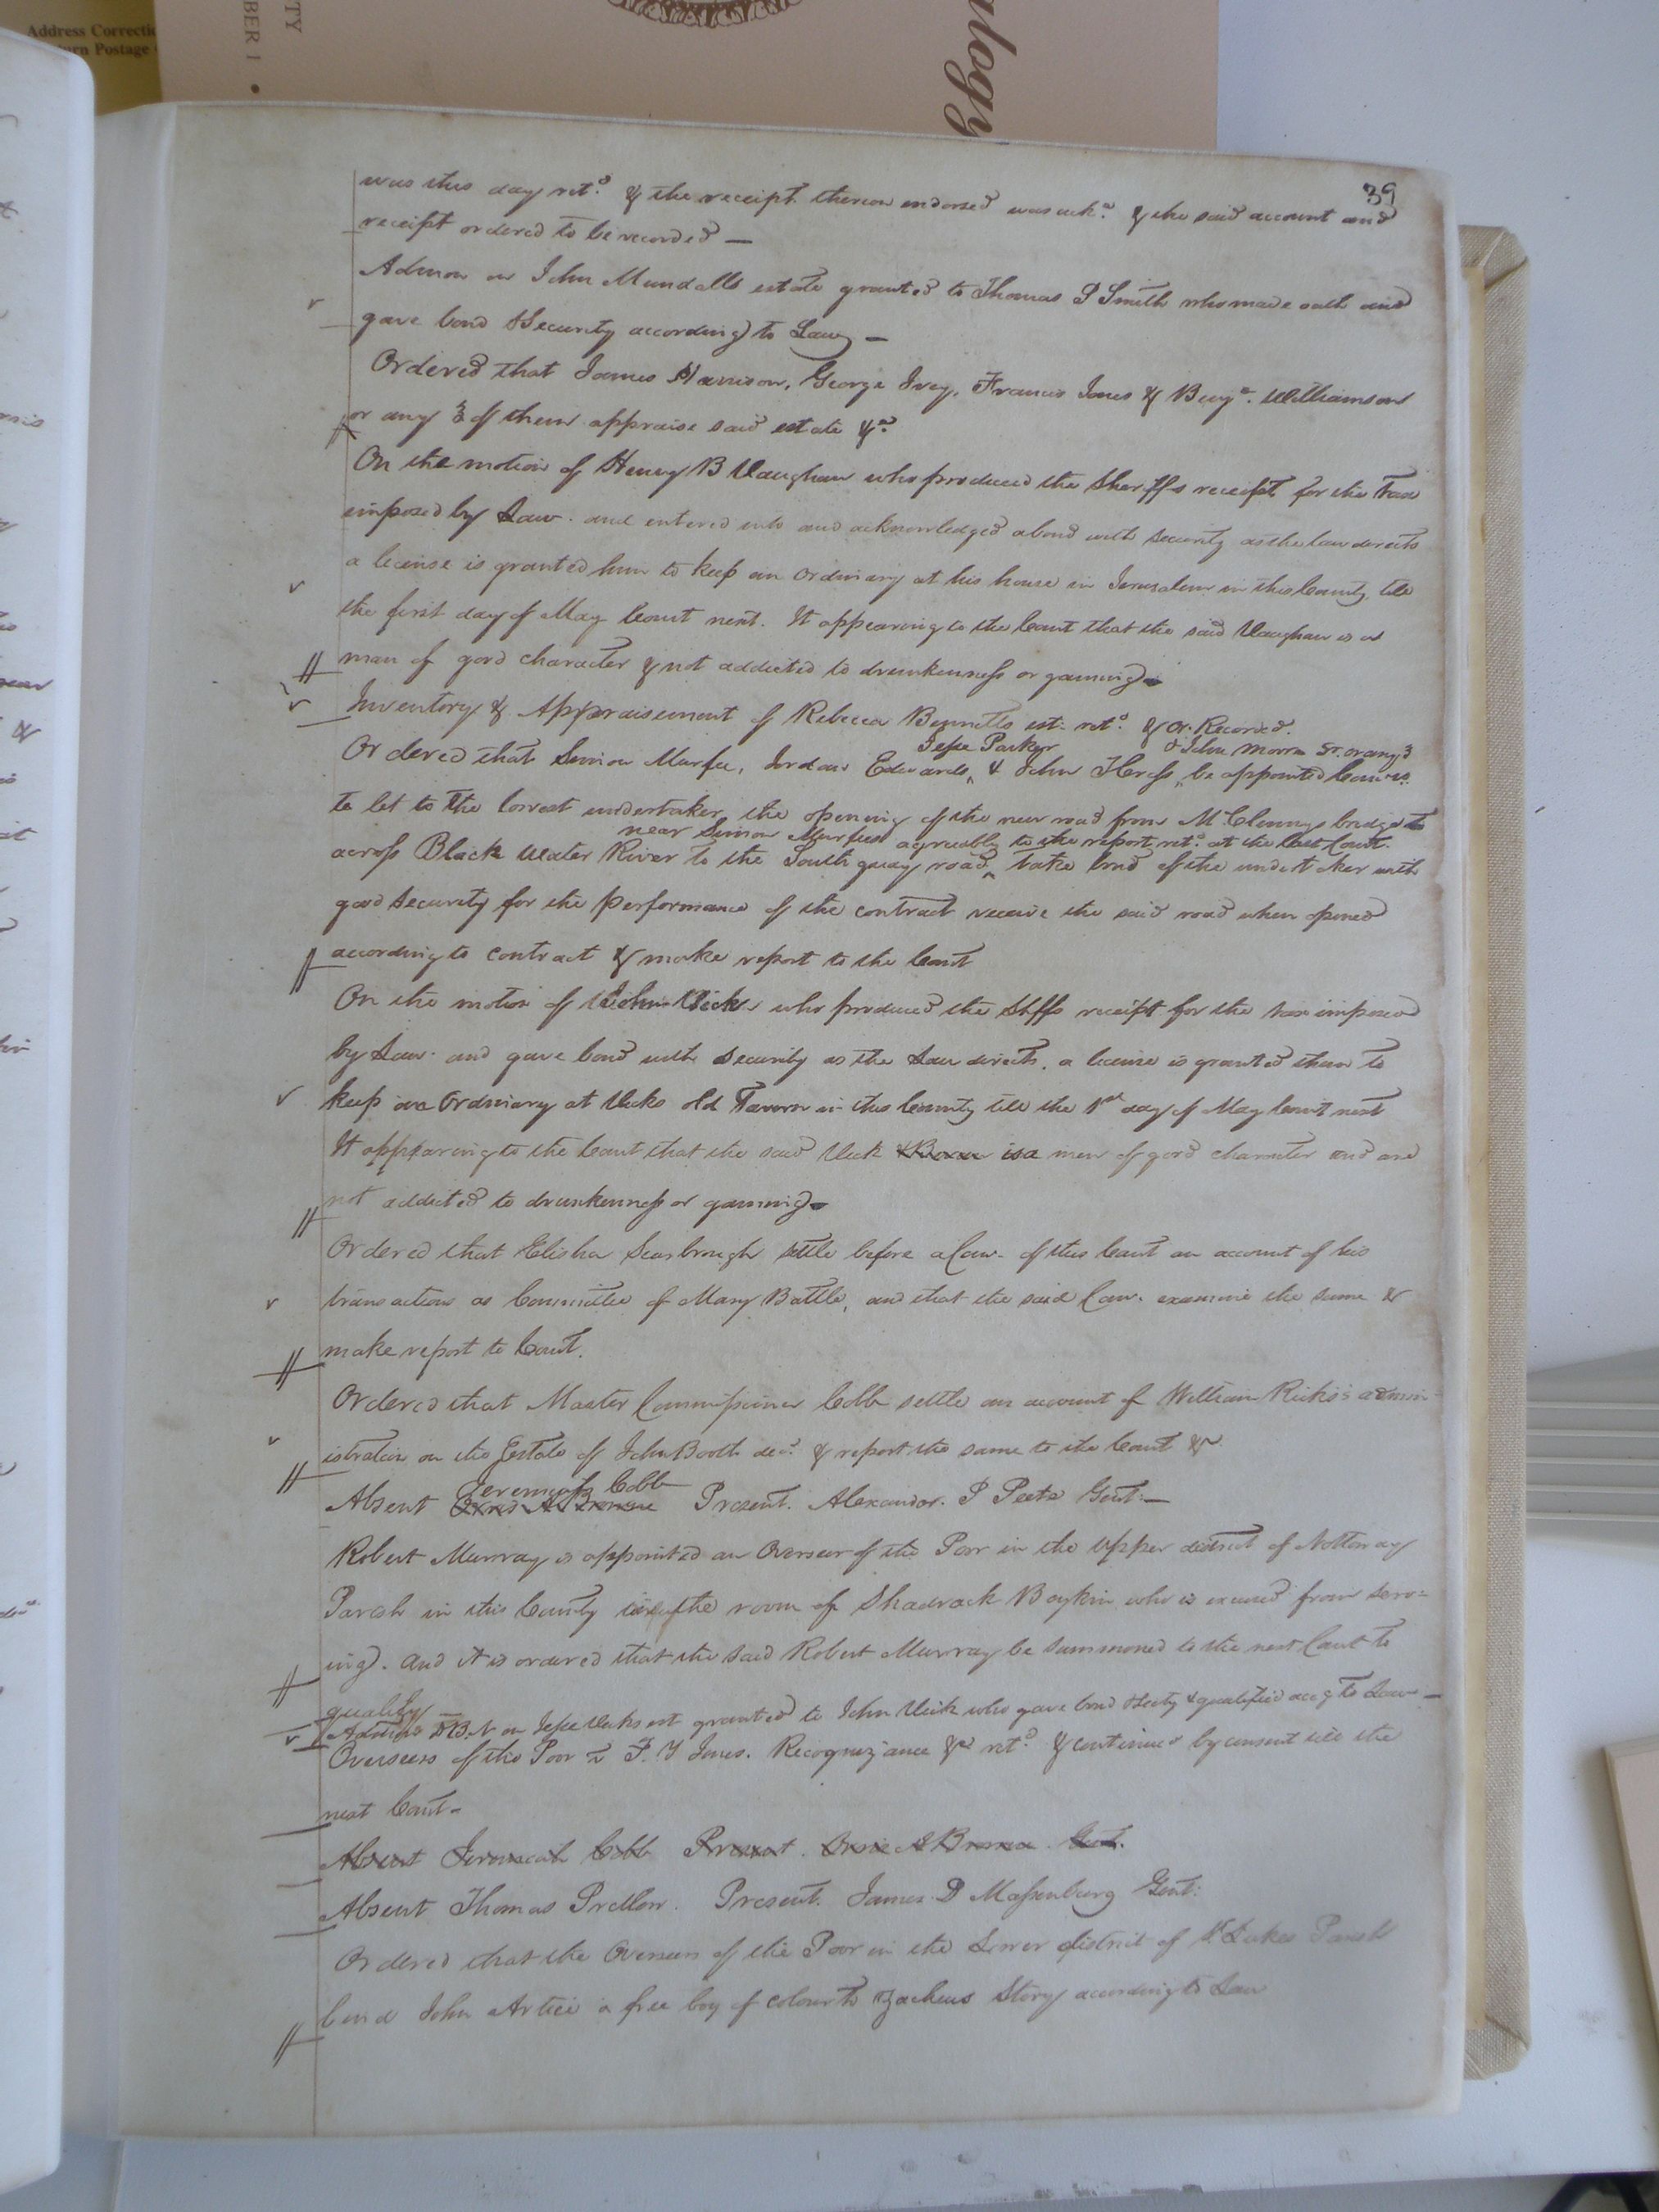 Address Correctio
urn Postage
TY
BER 1 •
ology
39
was this day retd. & the receipt thereon endorsed was ackd. & the said account and
receipt ordered to be recorded —
Admon on John Mundalls estate granted to Thomas P Smith who made oath and
gave bond & Security according to Law —
Ordered that James Harrison, George Ivey, Francis Jones & Benja. Williamson
or any 3 of them appraise said estate &c.
On the motion of Henry B Vaughan who produced the Sheriffs receipt for the tax
imposed by Law. and entered into and acknowledged a bond with Security as the law directs
a license is granted him to keep an ordinary at his house in Jerusalem in this County till
the first day of May Court next. It appearing to the Court that the said Vaughan is a
man of good character & not addicted to drunkenness or gaming
Inventory & Appraisement of Rebecca Bennetts est: retd. & Or. Recorded.
Jesse Parker & John Morris Sr. or any 3
Ordered that Simon Murfee, Jordan Edwards, & John be appointed Comrs.
to let to the lowest undertaker the opening of the new road from McClennys bridge
near Simon Murfees agreeably to the report retd. at the last Court.
across Black Water River to the South quay road, take bond of the undertaker with
good Security for the performance of the contract receive the said road when opened
according to contract & make report to the Court
On the motion of John Vick who produced the Shffs receipt for the tax imposed
by Law. and gave bond with Security as the Law directs, a license is granted them to
keep an Ordinary at Vicks old Tavern in this County till the 1st day of May Court next
It appearing to the Court that the said Vick is a men of good character and are
not addicted to drunkenness or gaming
Ordered that Elisha Scarbrough settle before a Com. of this Court an account of his
transactions as Committee of Mary Battle, and that the said Com. examine the same &
make report to Court.
Ordered that Master Commissioner Cobb settle an account of William Ricks's admin-
istration on the Estate of John Booth decd. & report the same to the Court &c.
Jeremiah Cobb
Absent Orris A Browne Present. Alexander. P Peete Gent: —
Robert Murray is appointed an Overseer of the Poor in the Upper district of Nottoway
Parish in this County in the room of Shadrack Boykin who is excused from serv=
ing. and it is ordered that the said Robert Murray be summoned to the next Court to
qualify
Admon DBN on Jesse Vicks est granted to John Vick who gave bond & Secty & qualified accg to Law —
Overseers of the Poor vs F. Y Jones. Recognizance &c retd. & continued by consent till the
next Court —
Absent Jeremiah Cobb Present. Orris A Browne Gent.
Absent Thomas Pretlow. Present. James D Massenburg Gent:
Ordered that the Overseers of the Poor in the Lower district of St. Lukes Parish
bind John Artice a free boy of colour to Zacheus Story according to Law